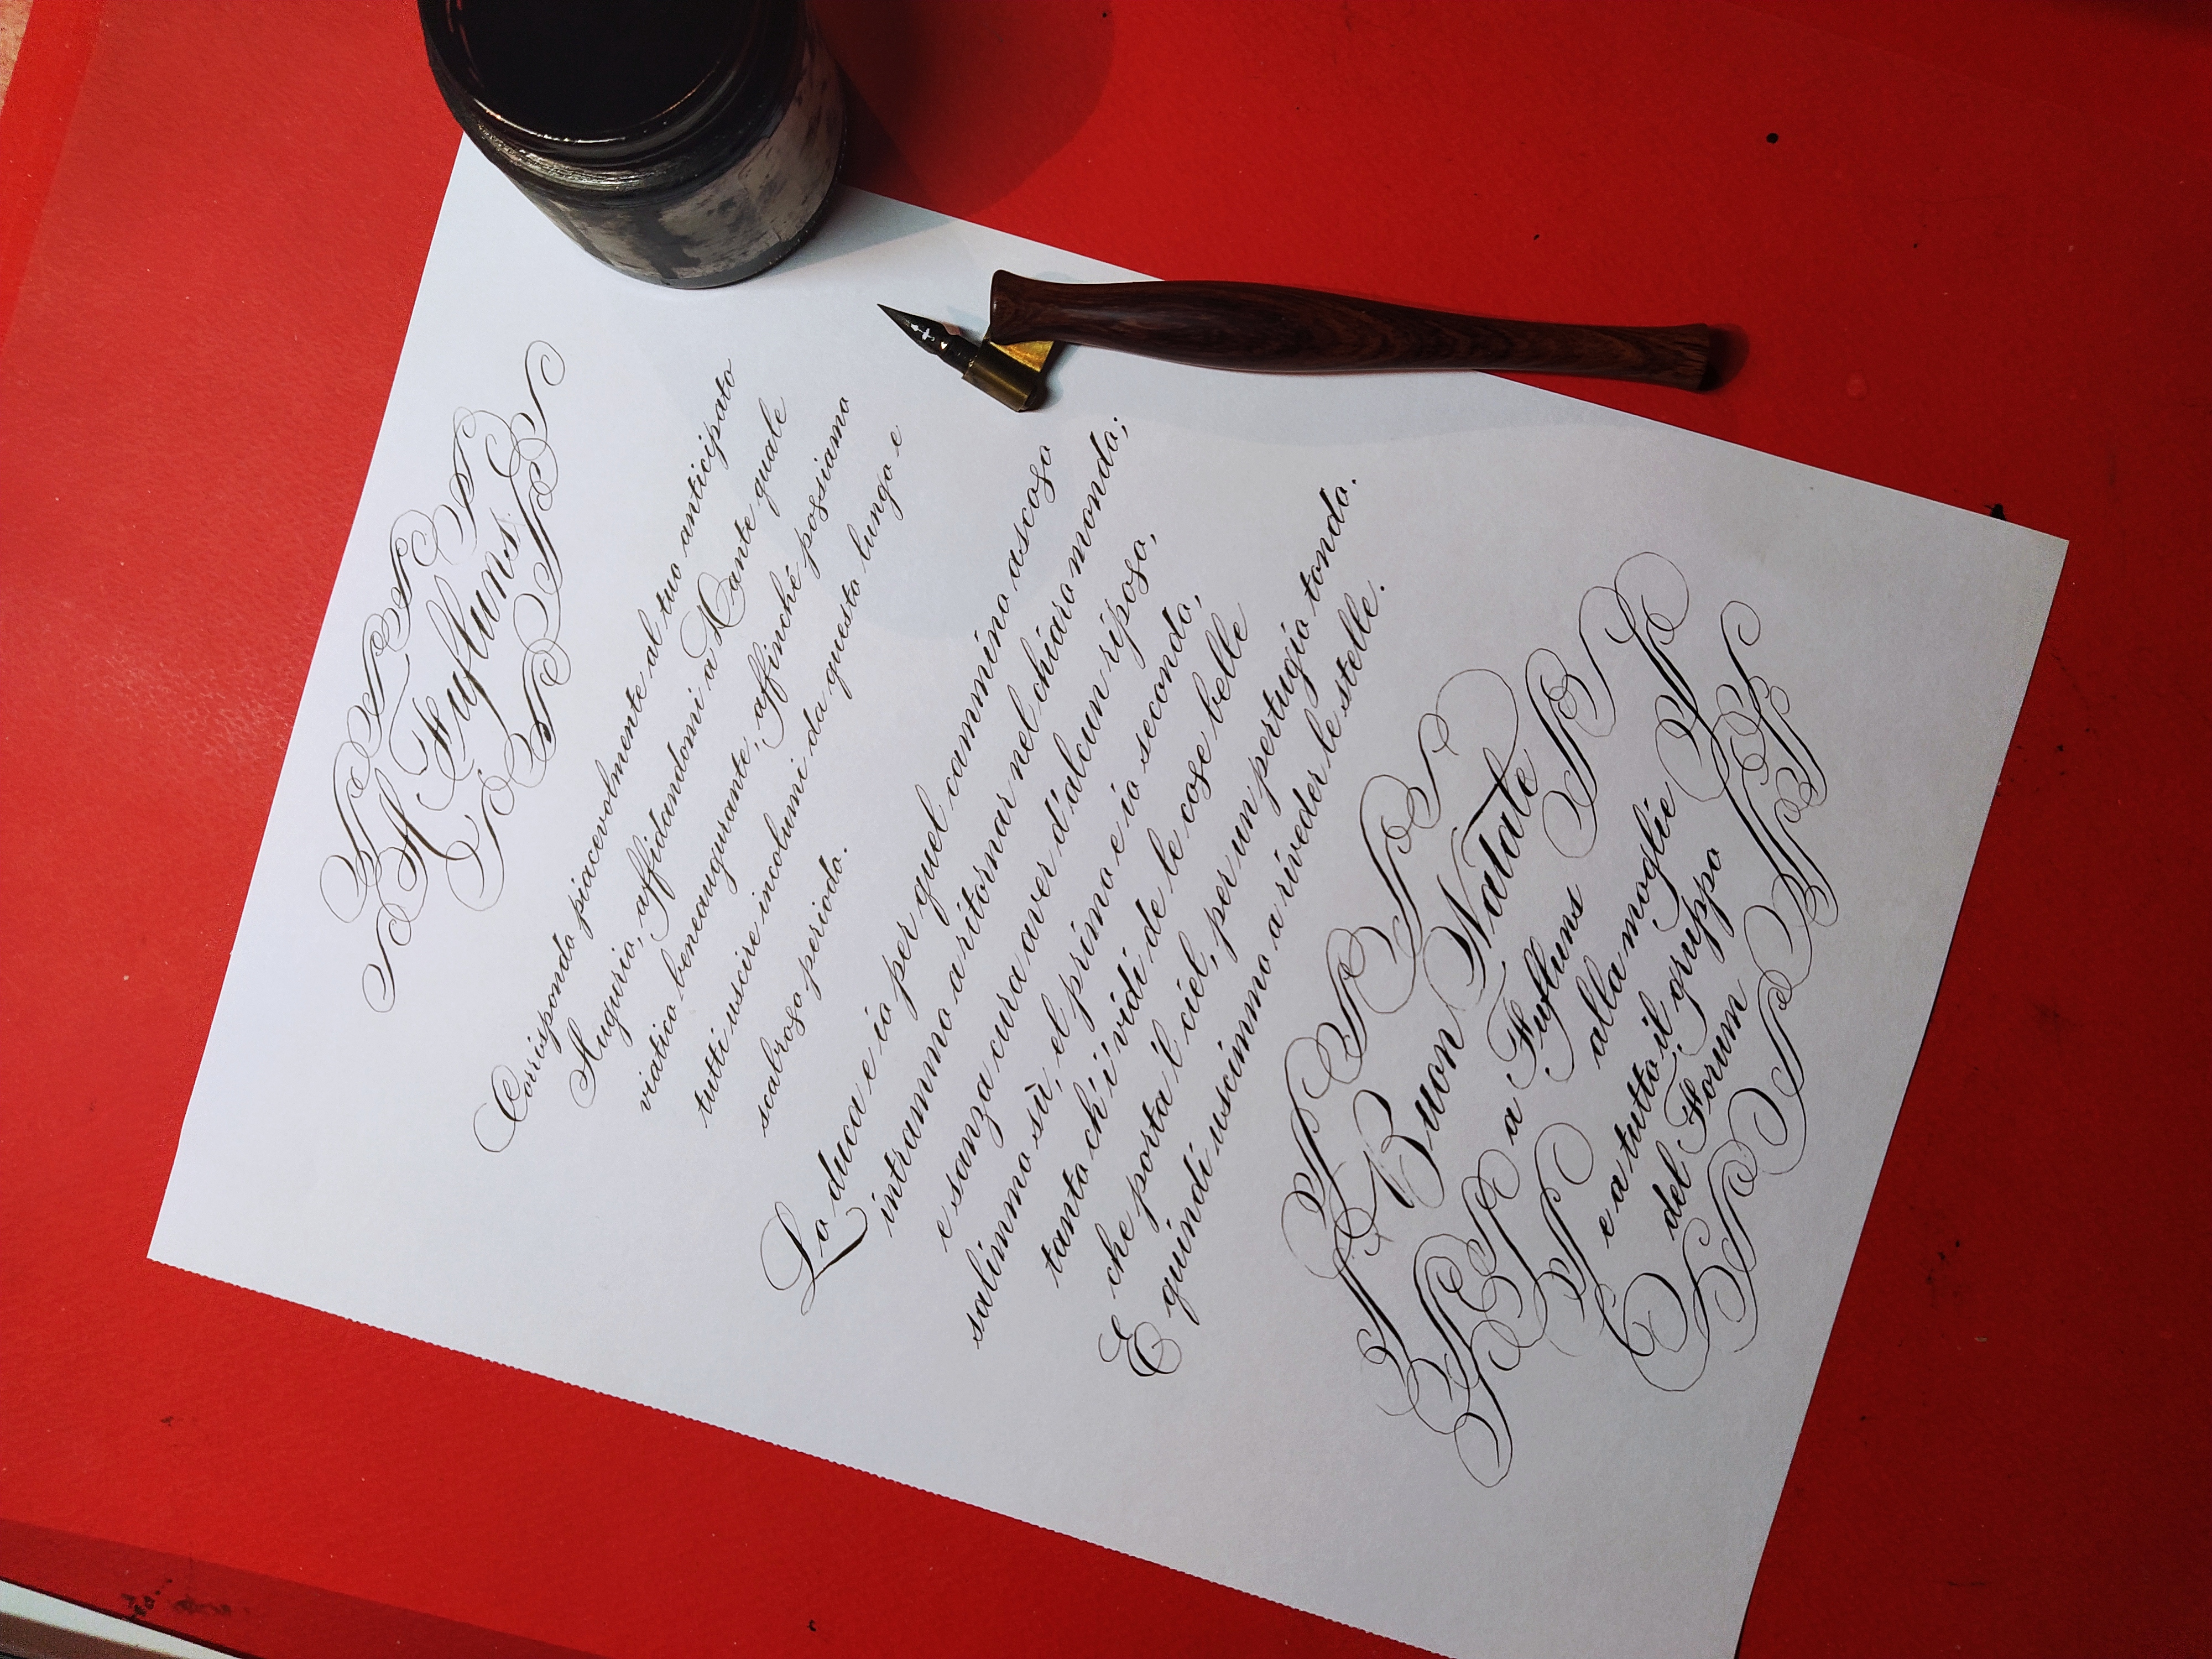 A Fufluns
Corrispondo piacevolmente al tuo anticipato
Augurio, affidandomi a Dante quale
viatico beneaugurante, affinché possiamo
tutti uscire incolumi da questo lungo e
scabroso periodo.
Lo duca e io per quel cammino ascoso
intrammo a ritornar nel chiaro mondo;
e sanza cura aver d'alcun riposo,
salimmo sù, el primo e io secondo,
tanto ch'i' vidi de le cose belle
che porta 'l ciel, per un pertugio tondo.
E quindi uscimmo a riveder le stelle.
Buon Natale
a Fufluns
alla moglie
e a tutto il gruppo
del Forum